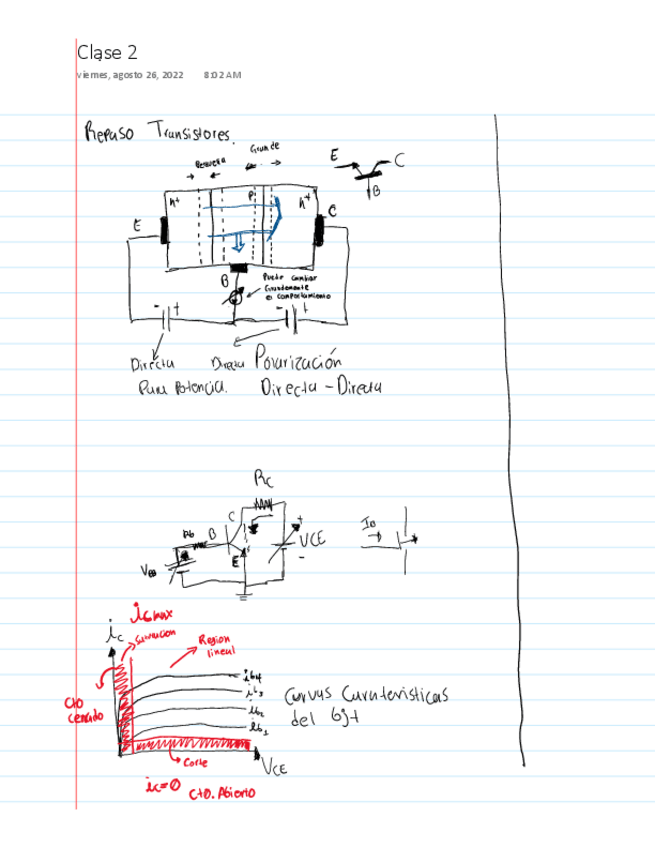 Clase 2
viernes, agosto 26, 2022 8:02 AM
Repaso Transistores.
Grande
E C
B
n+ P n+
E C
B
Puede cambiar
Grandemente
el comportamiento
- + - +
Directa Directa Polarización
Para Potencia. Directa - Directa
Rc
C
Rb B
E
VBB
+
VCE
-
IB
ic max
ic
Saturacion
Region
lineal
Cto
cerrado
ib4
ib3
ib2
ib1
Curvas Caracteristicas
del bjt
Corte
VCE
ic=0 Cto. Abierto